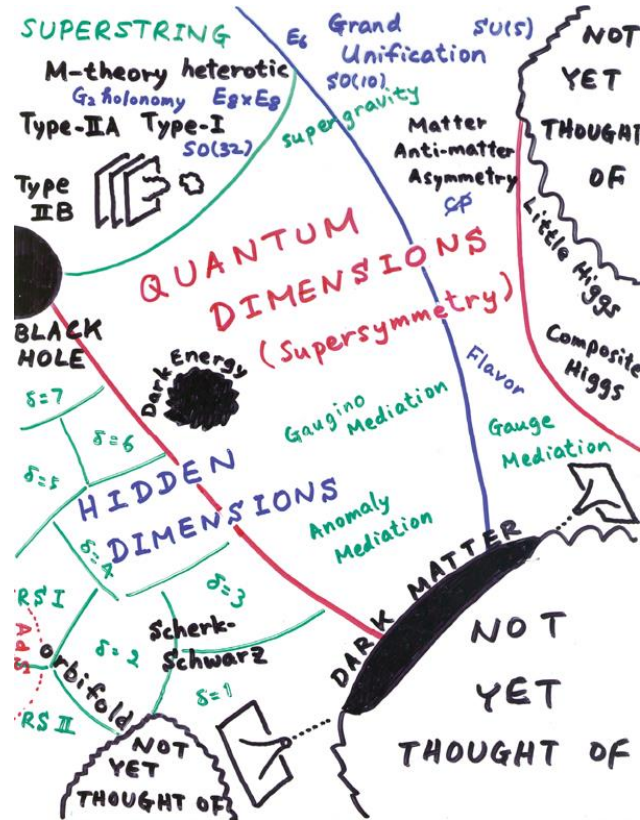 SUPERSTRING
M-theory heterotic
G₂ holonomy E8xE8
Type-IIA Type-I
SO(32)
Type
IIB
E6 Grand
Unification
SU(5)
SO(10)
supergravity
Matter
Anti-matter
Asymmetry
CP
NOT
YET
THOUGHT
OF
Little Higgs
Composite
Higgs
QUANTUM
DIMENSIONS
(Supersymmetry)
BLACK
HOLE
Dark Energy
Flavor
Gaugino
Mediation
Gauge
Mediation
Anomaly
Mediation
δ=7
δ=6
δ=5
HIDDEN
DIMENSIONS
δ=4
δ=3
RS I
AdS
δ=2
Scherk-
Schwarz
orbifold
δ=1
RS II
DARK MATTER
NOT
YET
THOUGHT OF
NOT
YET
THOUGHT OF